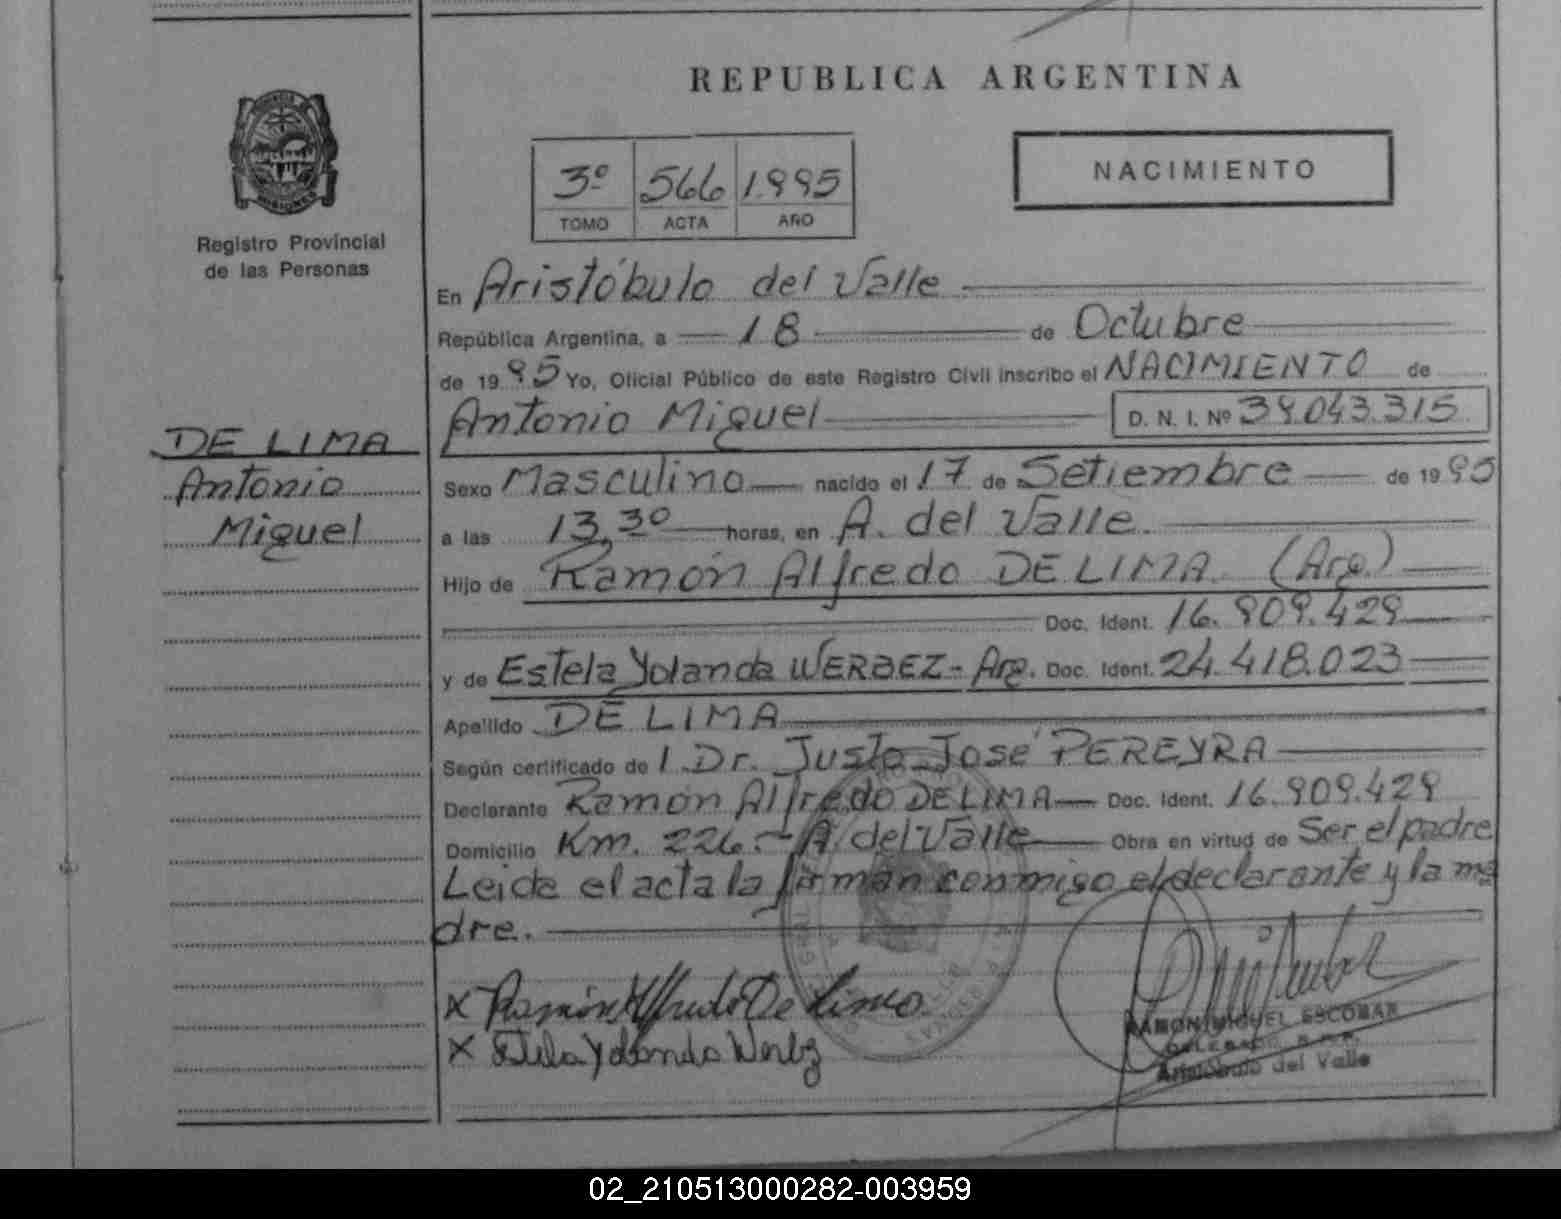 REPUBLICA ARGENTINA
PROVINCIA DE
MISIONES
Registro Provincial
de las Personas
3º 566 1.995
TOMO ACTA AÑO
NACIMIENTO
En Aristóbulo del Valle
República Argentina, a 18 de Octubre
de 1995 Yo, Oficial Público de este Registro Civil inscribo el NACIMIENTO de
Antonio Miguel D. N. I. Nº 39.043.315
DE LIMA
Antonio
Miguel
Sexo Masculino nacido el 17 de Setiembre de 1995
a las 13,30 horas, en A. del Valle.
Hijo de Ramón Alfredo DE LIMA. (Arg.)
Doc. Ident. 16.909.429
y de Estela Yolanda WERBEZ - Arg. Doc. Ident. 24.418.023
Apellido DE LIMA
Según certificado de l. Dr. Justo José PEREYRA
Declarante Ramón Alfredo DE LIMA Doc. Ident. 16.909.429
Domicilio Km. 226.- A. del Valle Obra en virtud de Ser el padre
Leida el acta la firman conmigo el declarante y la ma
dre.
X Ramón Alfredo De Lima
X Estela Yolanda Werbez
RAMON MIGUEL ESCOBAR
DELEGADO R.P.P.
Aristóbulo del Valle
02_210513000282-003959